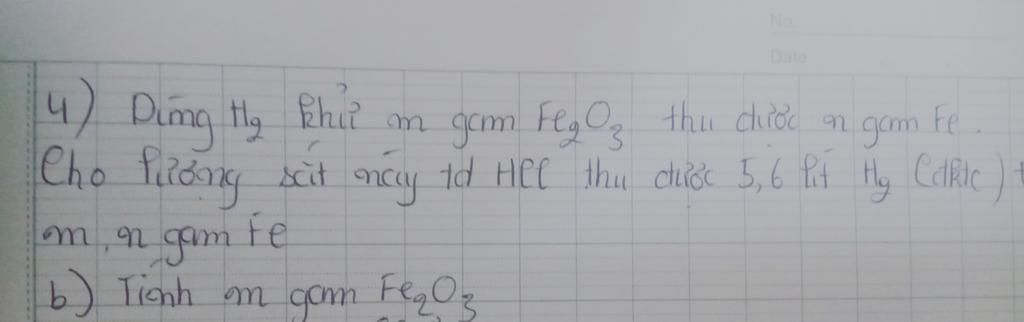 No.
Date
4) Dùng H₂ khử m gam Fe₂O₃ thu được n gam Fe.
Cho lượng sắt này td HCl thu được 5,6 lít H₂ (đktc) t
m, n gam Fe
b) Tính m gam Fe₂O₃